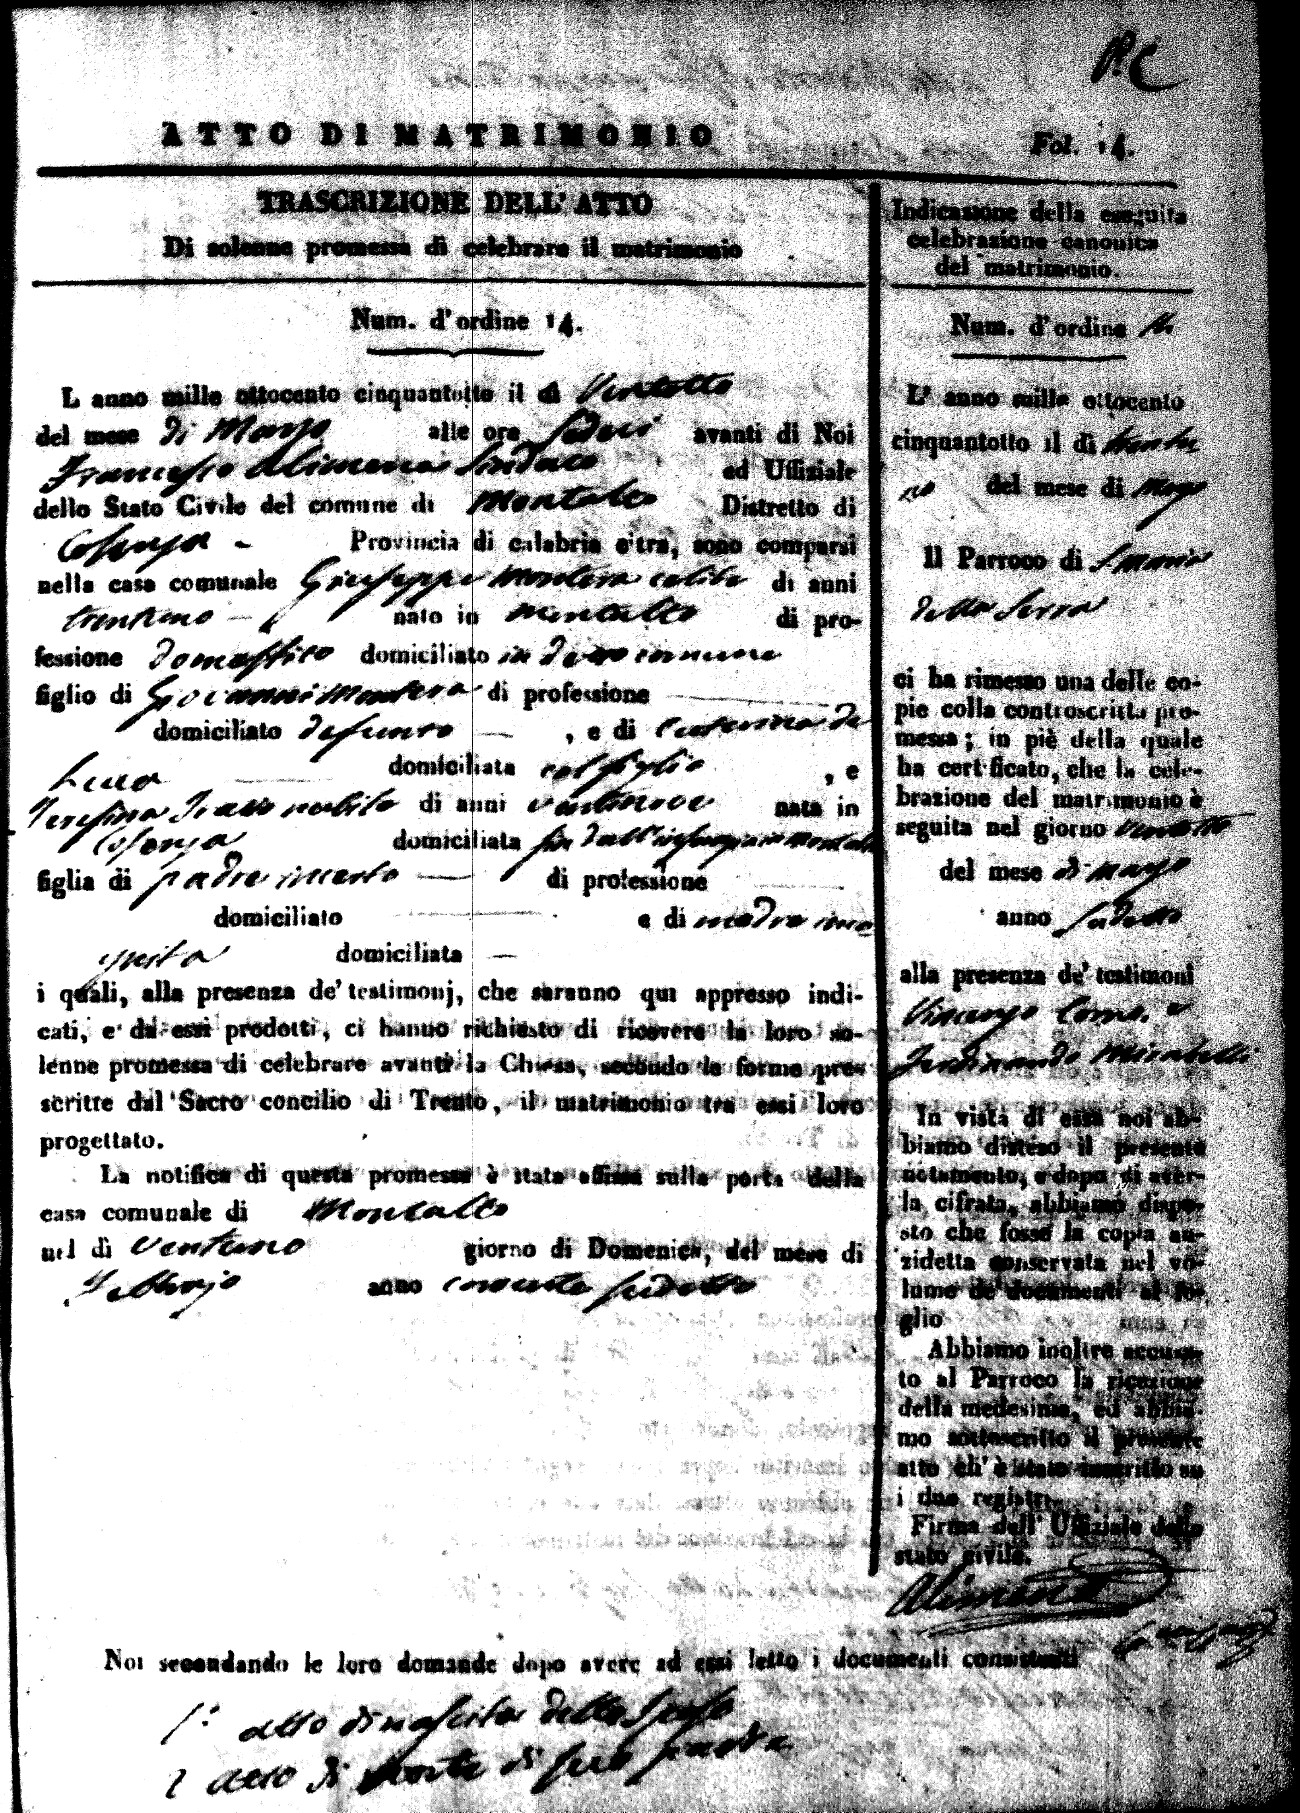 ATTO DI MATRIMONIO
Fol. 14.
TRASCRIZIONE DELL' ATTO
Di solenne promessa di celebrare il matrimonio
Num. d' ordine 14.
L anno mille ottocento cinquantotto il dì Ventotto
del mese di Marzo alle ore sedeci avanti di Noi
Francesco Alimena Sindaco ed Uffiziale
dello Stato Civile del comune di Montalto Distretto di
Cosenza Provincia di calabria citra, sono comparsi
nella casa comunale Giuseppe Montera celibe di anni
trentuno nato in Montalto di pro-
fessione domestico domiciliato in detto comune
figlio di Giovanni Montera di professione
domiciliato defunto , e di Caterina de
Luca domiciliata col figlio , e
Teresina nubile di anni ventinove nata in
Cosenza domiciliata fin dall'infanzia in Montalto
figlia di padre incerto di professione
domiciliato e di madre inco
gnita domiciliata
i quali, alla presenza de' testimonj, che saranno qui appresso indi-
cati, e da essi prodotti, ci hanno richiesto di ricevere la loro so-
lenne promessa di celebrare avanti la Chiesa, secondo le forme pre-
scritte dal Sacro concilio di Trento, il matrimonio tra essi loro
progettato.
La notifica di questa promessa è stata affissa sulla porta della
casa comunale di Montalto
nel dì ventuno giorno di Domenica, del mese di
Febbrajo anno corrente sudetto
Indicazione della eseguita
celebrazione canonica
del matrimonio.
Num. d' ordine
L' anno mille ottocento
cinquantotto il dì trentu
no del mese di Marzo
Il Parroco di S. Maria
della Serra
ci ha rimesso una delle co-
pie colla controscritta pro-
messa; in piè della quale
ha certificato, che la cele-
brazione del matrimonio è
seguita nel giorno ventotto
del mese di Marzo
anno sudetto
alla presenza de' testimoni
Vincenzo e
Ferdinando Mirabelli
In vista di essa noi ab-
biamo disteso il presente
notamento, e dopo di aver-
la cifrata, abbiamo dispo-
sto che fosse la copia an-
zidetta conservata nel vo-
lume de' documenti al fo-
glio
Abbiamo inoltre accusa-
to al Parroco la ricezione
della medesima, ed abbia-
mo sottoscritto il presente
atto ch' è stato inscritto su
i due registri.
Firma dell' Uffiziale dello
stato civile.
Alimena
Noi secondando le loro domande dopo avere ad essi letto i documenti consistenti
1.° atto di nascita dello Sposo
2 atto di morte di suo padre